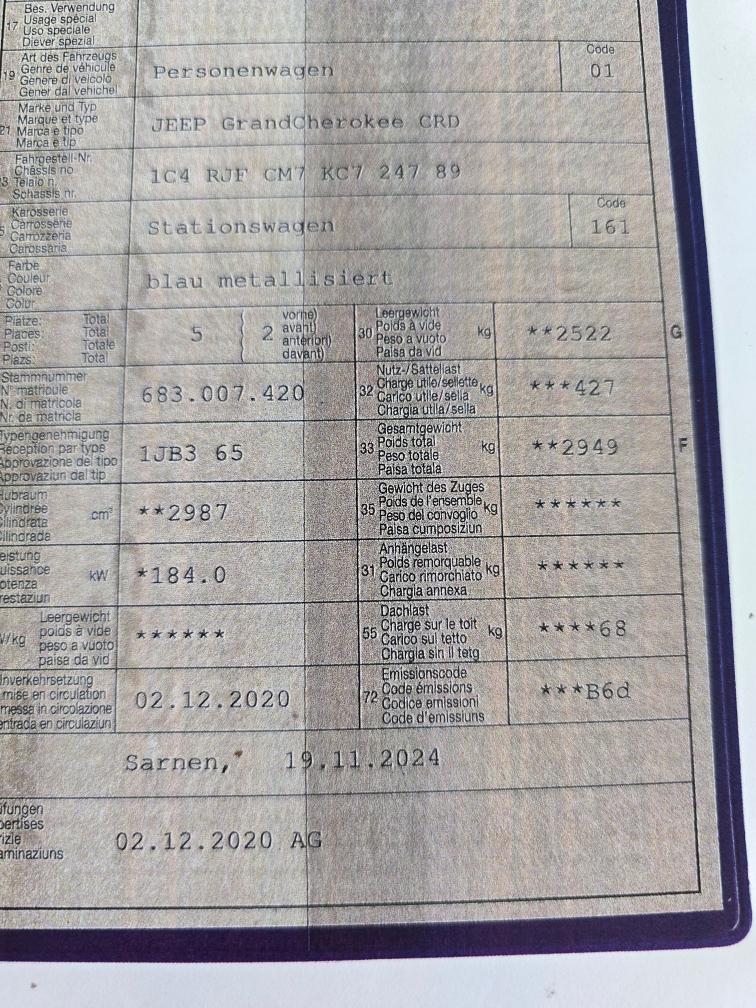 Bes. Verwendung
17 Usage spécial
Uso speciale
Diever spezial
Art des Fahrzeugs
19 Genre de véhicule
Genere di veicolo
Gener dal vehichel
Personenwagen
Code
01
Marke und Typ
21 Marque et type
Marca e tipo
Marca e tip
JEEP GrandCherokee CRD
Fahrgestell-Nr.
Châssis no
3 Telaio n.
Schassis nr.
1C4 RJF CM7 KC7 247 89
Karosserie
5 Carrosserie
Carrozzeria
Carossaria
Stationswagen
Code
161
Farbe
Couleur
Colore
Colur
blau metallisiert
Plätze: Total
Places: Total
Posti: Totale
Plazs: Total
5
2
vorne)
avant)
anteriori)
davant)
30 Leergewicht
Poids à vide
Peso a vuoto
Paisa da vid
kg
**2522
G
Stammnummer
N° matricule
N. di matricola
Nr. da matricla
683.007.420
32 Nutz-/Sattellast
Charge utile/sellette
Carico utile/sella
Chargia utila/sella
kg
***427
Typengenehmigung
Réception par type
Approvazione del tipo
Approvaziun dal tip
1JB3 65
33 Gesamtgewicht
Poids total
Peso totale
Paisa totala
kg
**2949
F
Hubraum
Cylindrée
Cilindrata
Cilindrada
cm³
**2987
35 Gewicht des Zuges
Poids de l'ensemble
Peso del convoglio
Paisa cumposiziun
kg
******
eistung
uissance
otenza
restaziun
kW
*184.0
31 Anhängelast
Poids remorquable
Carico rimorchiato
Chargia annexa
kg
******
W/kg
Leergewicht
poids à vide
peso a vuoto
paisa da vid
******
55 Dachlast
Charge sur le toit
Carico sul tetto
Chargia sin il tetg
kg
****68
Inverkehrsetzung
mise en circulation
messa in circolazione
entrada en circulaziun
02.12.2020
72 Emissionscode
Code émissions
Codice emissioni
Code d'emissiuns
***B6d
Sarnen, 19.11.2024
üfungen
pertises
rizie
aminaziuns
02.12.2020 AG